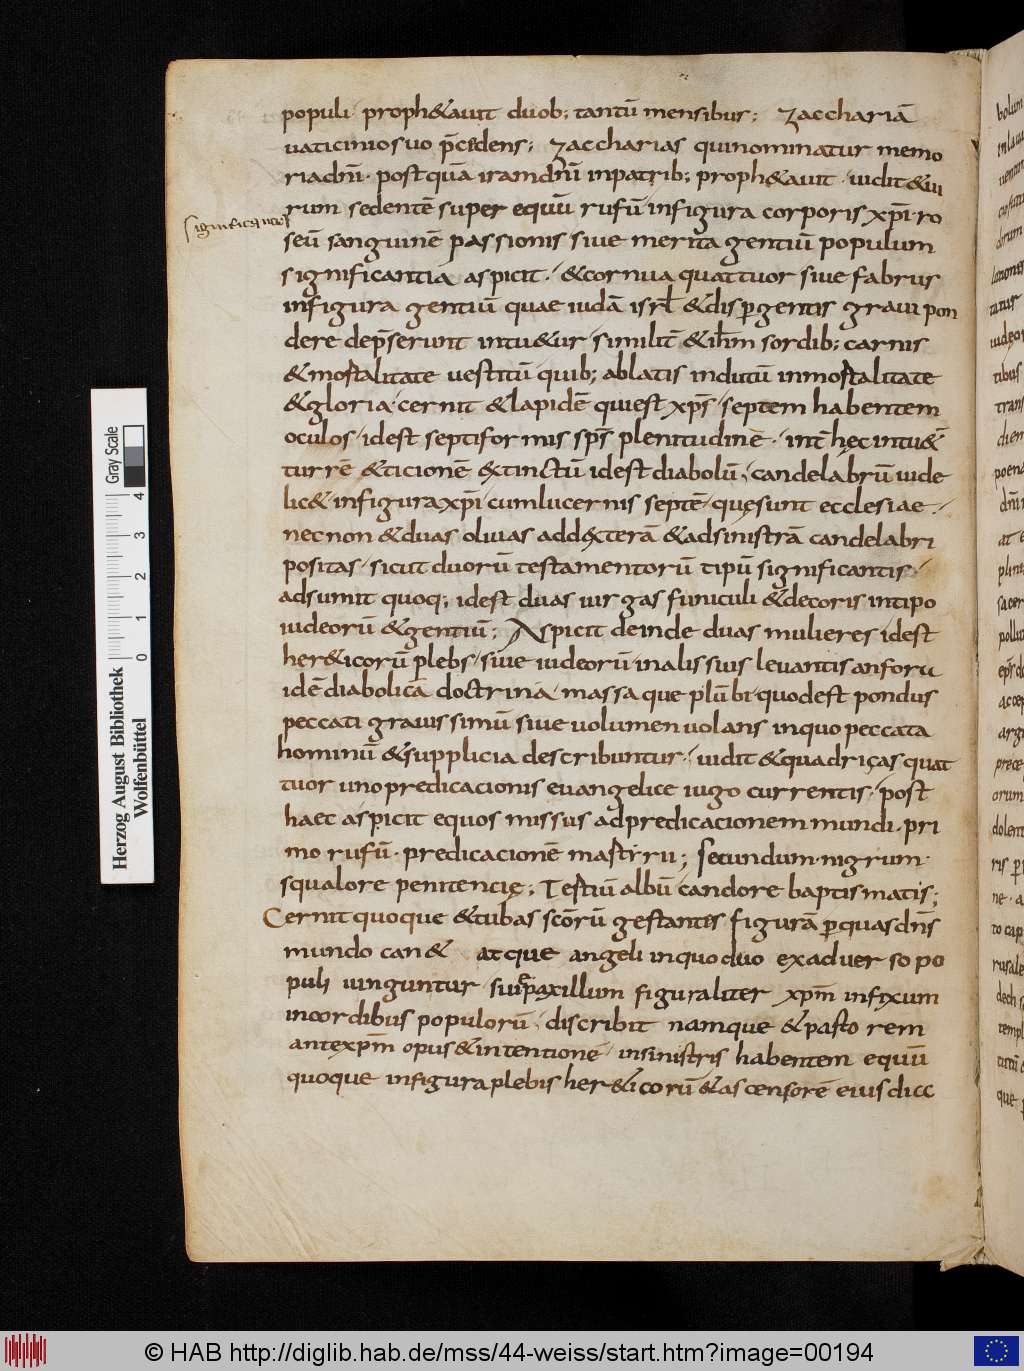 populi · proph&auit duob; tantū mensibus; Zacchariā
uaticinio suo p̄cedens; Zaccharias qui nominatur memo
ria dn̄i · postquā iram dn̄i in patrib; proph&auit · uidit & ui
rum sedentē super equū rufū in figura corporis xp̄i · ro
seū sanguinē passionis siue merita gentiū populum
significantia aspicit · & cornua quattuor siue fabrus
in figura gentiū quae iudā isrl̄ & dispgentis graui pon
dere dep̄serunt intu&ur similit̄ & ih̄m sordib; carnis
& mortalitate uestitū quib; ablatis indutū inmortalitate
& gloria cernit & lapidē qui est xp̄s septem habentem
oculos · idest septiformis sp̄s plenitudinē · int̄ hęc intu&
turrē & ticionē extinctū idest diabolū, candelabrū uide
lic& in figura xp̄i cum lucernis septē quę sunt ecclesiae ·
necnon & duas oliuas ad dexterā & ad sinistrā candelabri
positas · sicut duorū testamentorū tipū significantis
adsumit quoq; idest duas uirgas funiculi & decoris in tipo
iudeorū & gentiū; Aspicit deinde duas mulieres idest
her&icorū plebs siue iudeorū in alis suis leuantis anforā
idē diabolicā doctrinā massa que plūbi quod est pondus
peccati grauissimū siue uolumen uolans in quo peccata
hominū & supplicia describuntur · uidit & quadrigas quat
tuor uno predicacionis euangelice iugo currentis · post
haec aspicit equos missus ad predicacionem mundi · pri
mo rufū · predicacionē martirii; Secundum nigrum ·
squalore penitencię; Tertiū albū candore baptismatis;
Cernit quoque & tubas sc̄orū gestantes figurā p quas dn̄s
mundo can& atque angeli in quo duo ex aduerso po
puli iunguntur siue paxillum figuraliter xp̄m infixum
in cordibus populorū, discribit namque & pastorem
antexp̄m opus & intentionē in sinistris habentem equū
quoque in figura plebis her&icorū & ascensorē eius dicc
Herzog August Bibliothek
Wolfenbüttel
Gray Scale
0 1 2 3 4
© HAB http://diglib.hab.de/mss/44-weiss/start.htm?image=00194